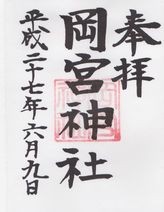 奉拝
岡宮神社
平成二十七年六月九日